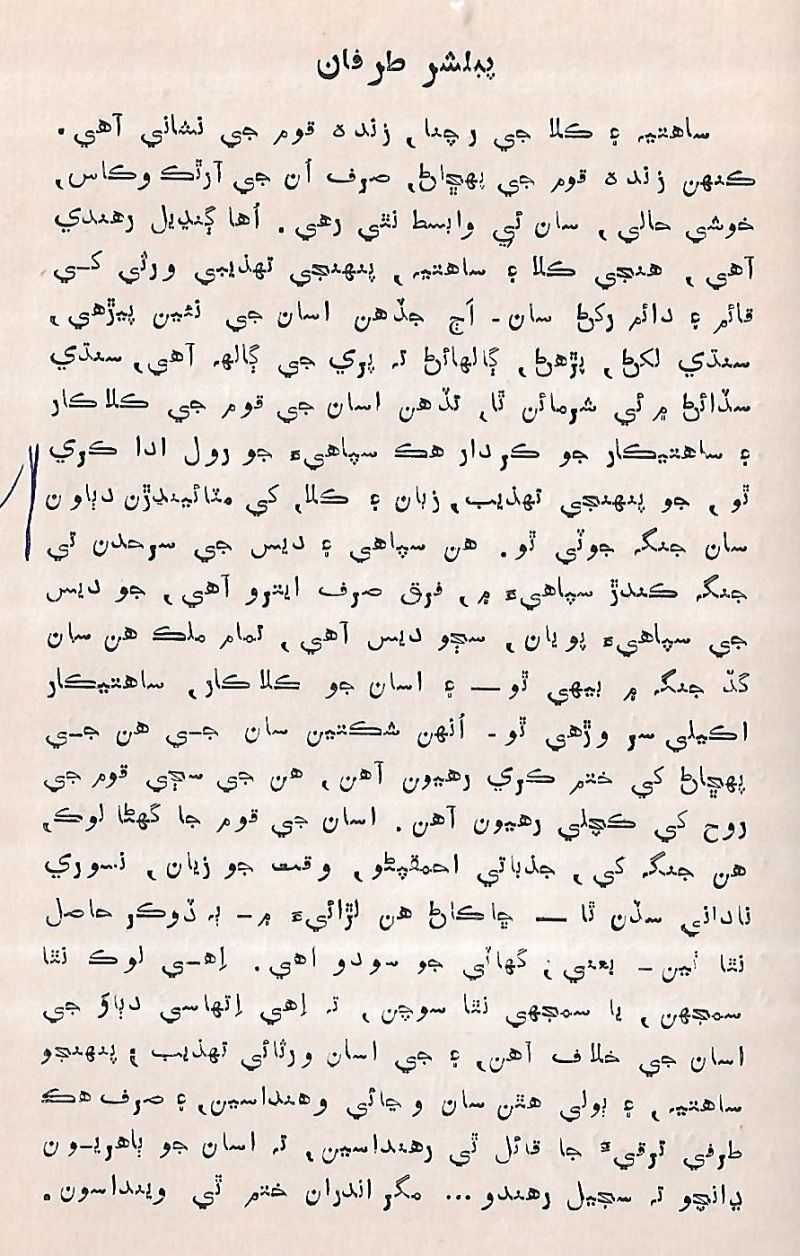 پبلشر طرفان
ساهتيه ۽ ڪلا جي رچنا, زنده قوم جي نشاني آهي.
ڪنهن زنده قوم جي پهچاڻ, صرف اُن جي آرٿڪ وڪاس,
خوشي حالي, سان ئي وابسط نٿي رهي. اُها ڳنڍيل رهندي
آهي, هنجي ڪلا ۽ ساهتيه, پنهنجي تهذيبي ورثي کي
قائم ۽ دائم رکڻ سان - اَڄ جڏهن اسان جي نئين پيڙهي,
سنڌي لکڻ, پڙهڻ, ڳالهائڻ ته پري جي ڳالهه آهي, سنڌي
سڏائڻ ۾ ئي شرمائن ٿا, تڏهن اسان جي قوم جي ڪلاڪار
۽ ساهتيڪار جو ڪردار هڪ سپاهيءَ جو رول ادا ڪري
ٿو, جو پنهنجي تهذيب, زبان ۽ ڪلا, کي مٽائيندڙن دٻاون
سان جنگ جوٽي ٿو. هن سپاهي ۽ ديس جي سرحدن تي
جنگ ڪندڙ سپاهيءَ ۾, فرق صرف ايترو آهي, جو ديس
جي سپاهيءَ پويان, سڄو ديس آهي, تمام ملڪ هن سان
گڏ جنگ ۾ بيهي ٿو — ۽ اسان جو ڪلاڪار, ساهتيڪار
اڪيلي سر وڙهي ٿو - اُنهن شڪتين سان جي هن جي
پهچاڻ کي ختم ڪري رهيون آهن, هن جي سڄي قوم جي
روح کي ڪچلي رهيون آهن. اسان جي قوم جا گهڻا لوڪ,
هن جنگ کي, جذباتي احمقپڻو, وقت جو زيان, نسوري
ناداني سڏن ٿا — ڇاڪاڻ هن لڙائيءَ ۾ - ٻه ڏوڪر حاصل
نٿا ٿين - يعني; گهاٽي جو سودو آهي. اِهي لوڪ نٿا
سمجهن, يا سمجهي نٿا سوچن, ته اِهي اِتهاسي دٻاؤ جي
اسان جي خلاف آهن, ۽ جي اسان ورثائي تهذيب ۽ پنهنجو
ساهتيه, ۽ ٻولي هٿن سان وڃائي وهنداسين, ۽ صرف هڪ
طرفي ترقيءَ جا قائل ٿي رهنداسين, ته اسان جو ٻاهريون
ڍانچو ته سڄيل رهندو... مگر اندران ختم ٿي وينداسون.